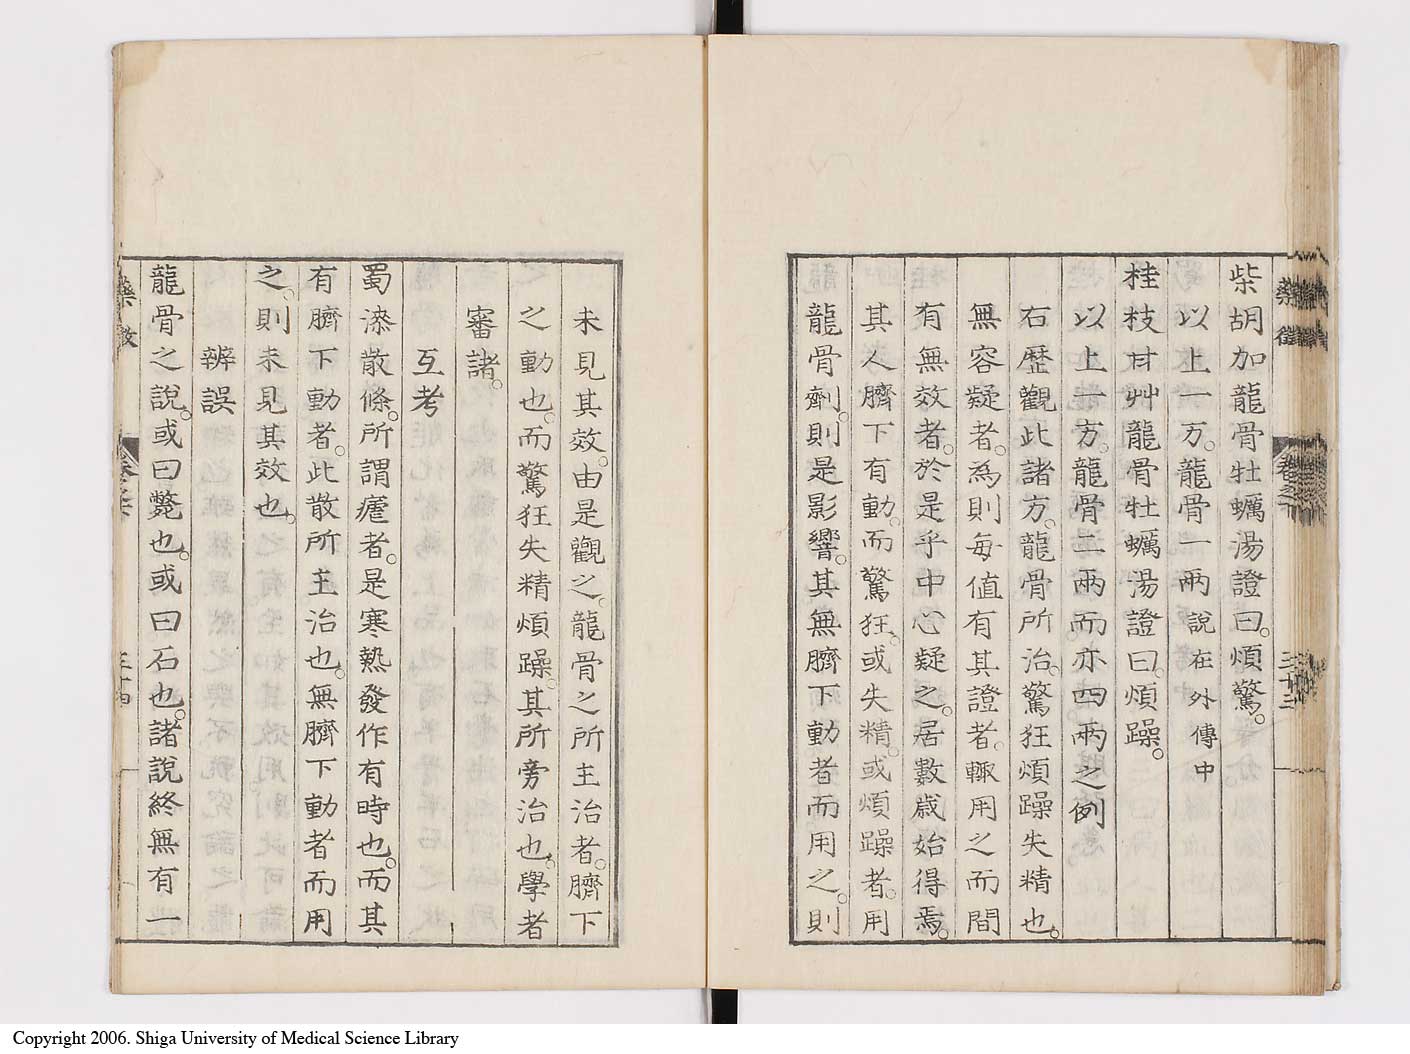 柴胡加龍骨牡蠣湯證曰。煩驚。
以上一方。龍骨一兩說在外傳中
桂枝甘艸龍骨牡蠣湯證曰。煩躁。
以上一方。龍骨二兩而亦四兩之例
右歷觀此諸方。龍骨所治。驚狂煩躁失精也。
無容疑者。爲則每値有其證者。輙用之而間
有無效者。於是乎中心疑之。居數歲始得焉。
其人臍下有動。而驚狂。或失精。或煩躁者。用
龍骨劑。則是影響。其無臍下動者而用之。則
未見其效。由是觀之。龍骨之所主治者。臍下
之動也。而驚狂失精煩躁。其所旁治也。學者
審諸。
互考
蜀漆散條。所謂瘧者。是寒熱發作有時也。而其
有臍下動者。此散所主治也。無臍下動者而用
之。則未見其效也。
辨誤
龍骨之說。或曰斃也。或曰石也。諸說終無有一
藥徵
卷之
三十三
三十四
Copyright 2006. Shiga University of Medical Science Library